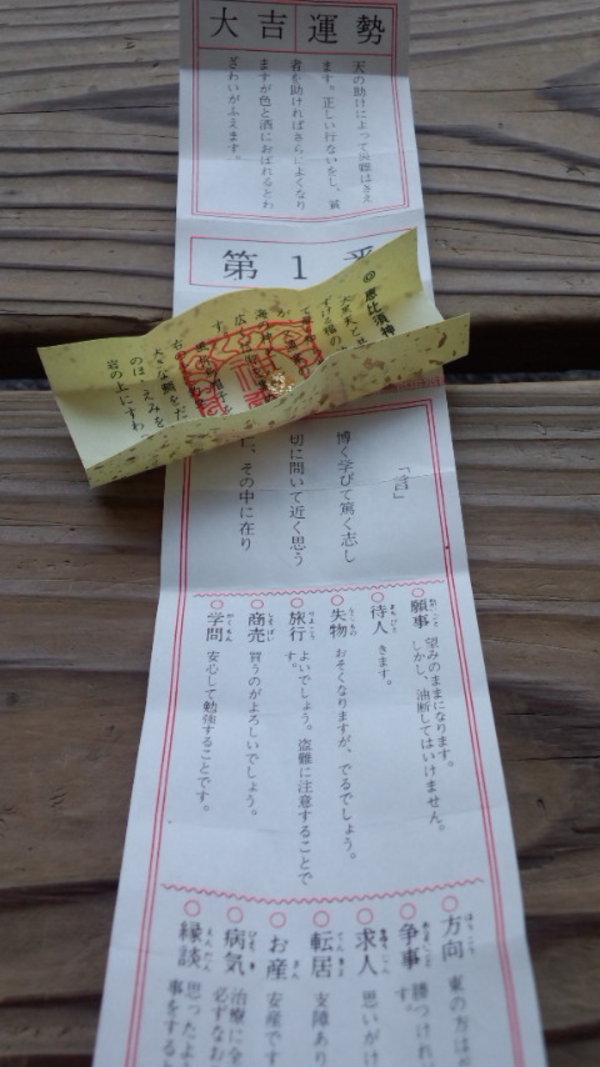 大吉運勢
天の助けによって災難はきえ
ます。正しい行ないをし、貧
者を助ければさらによくなり
ますが色と酒におぼれるとわ
ざわいがふえます。
第1番
◎恵比須神
大黒天と
ずける福の
海の
す。
右の
大きな鯛をだ
のほ、えみを
岩の上にすわ
「言」
博く学びて篤く志し
切に問いて近く思う
仁、その中に在り
○願事 望みのままになります。
しかし、油断してはいけません。
○待人 きます。
○失物 おそくなりますが、でるでしょう。
○旅行 よいでしょう。盗難に注意することで
す。
○商売 買うのがよろしいでしょう。
○学問 安心して勉強することです。
○方向 東の方は
○争事 勝つけれ
す。
○求人 思いがけ
○転居 支障あり
○お産 安産です
○病気 治療に全
必ずなお
○縁談 思ったよ
事をする